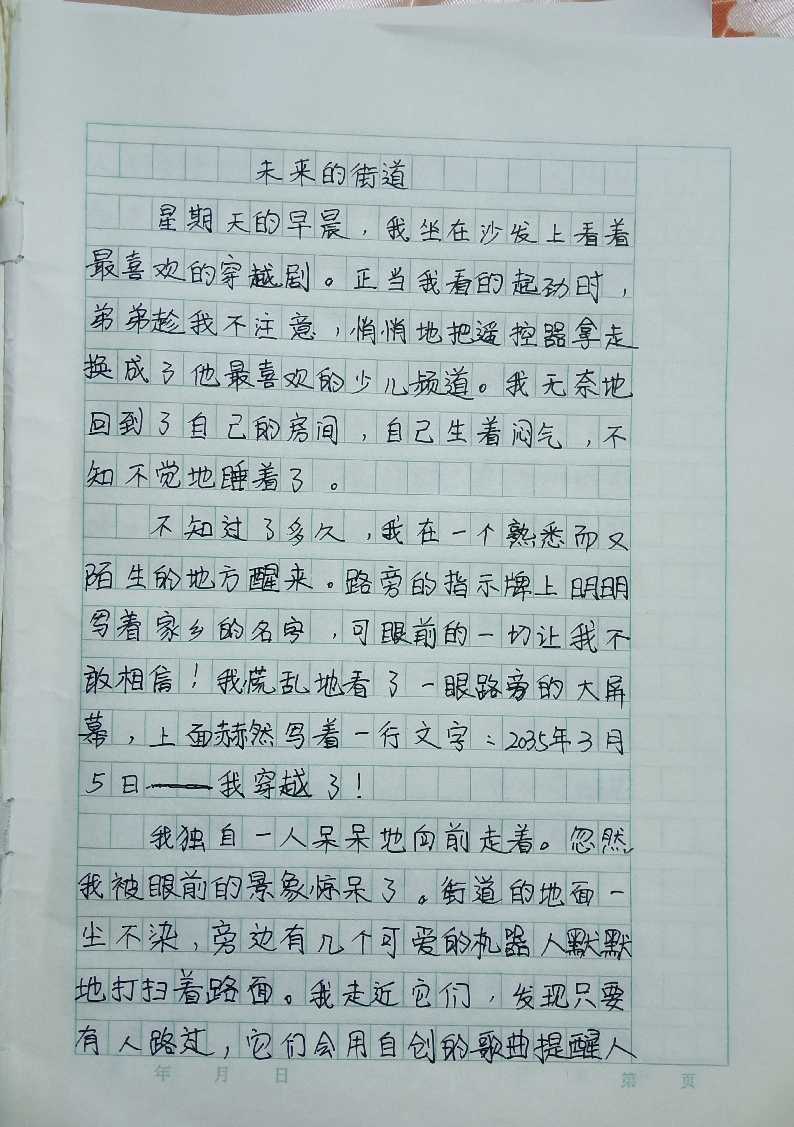 未来的街道
星期天的早晨，我坐在沙发上看着
最喜欢的穿越剧。正当我看的起劲时，
弟弟趁我不注意，悄悄地把遥控器拿走
换成了他最喜欢的少儿频道。我无奈地
回到了自己的房间，自己生着闷气，不
知不觉地睡着了。
不知过了多久，我在一个熟悉而又
陌生的地方醒来。路旁的指示牌上明明
写着家乡的名字，可眼前的一切让我不
敢相信！我慌乱地看了一眼路旁的大屏
幕，上面赫然写着一行文字：2035年3月
5日——我穿越了！
我独自一人呆呆地向前走着。忽然，
我被眼前的景象惊呆了。街道的地面一
尘不染，旁边有几个可爱的机器人默默
地打扫着路面。我走近它们，发现只要
有人路过，它们会用自创的歌曲提醒人
年 月 日 第 页